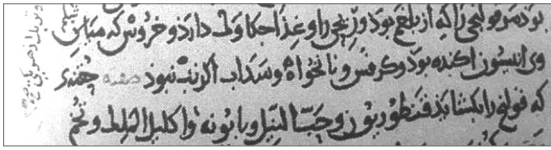 بوذ مر قولنجی را که از بلغم بوذ و ریحی را و غذا چکاوک دارذ و خروش که میان
وی انیسون اکنده بوذ و کرفس و نانخواه و سداب اگر تب نبوذ صفه حقنه
که قولنج را بکشاید قنطوریون و حب النیل و بابونه و اکلیل الملک و تخم